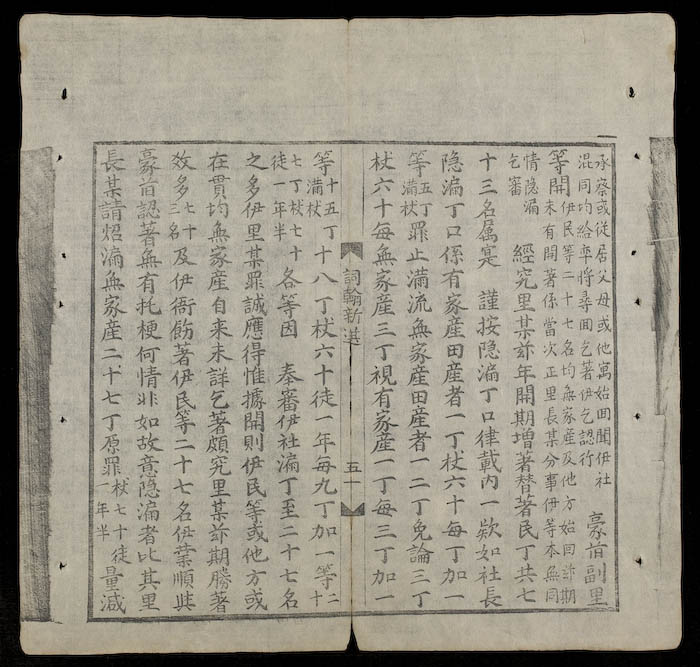 承察或從居父母或他寓始囬聞伊社
混同均給率將尋聞乞著伊乞認行
豪首副里
等開伊民等二十七名均無家産及他方始囬玆期
未有開著係當次正里長某分事伊等本無同
情隱漏
乞審
經究里某玆年開期增著替著民丁共七
十三名属寔 謹按隱漏丁口律載內一欵如社長
隱漏丁口係有家産田産者一丁杖六十每丁加一
等五丁滿杖罪止滿流無家産田産者一二丁免論三丁
杖六十每無家産三丁視有家産一丁每三丁加一
詞翰新選
五十
等十五丁滿杖十八丁杖六十徒一年每九丁加一等二十
七丁杖七十徒一年半各等因 奉審伊社漏丁至二十七名
之多伊里某罪誠應得惟據開則伊民等或他方或
在貫均無家産自来未詳乞著頗究里某玆期勝著
效多七十三名及伊衙飭著伊民等二十七名伊葉順與
豪首認著無有托梗何情非如故意隱漏者比其里
長某請炤漏無家産二十七丁原罪杖七十徒一年半量減